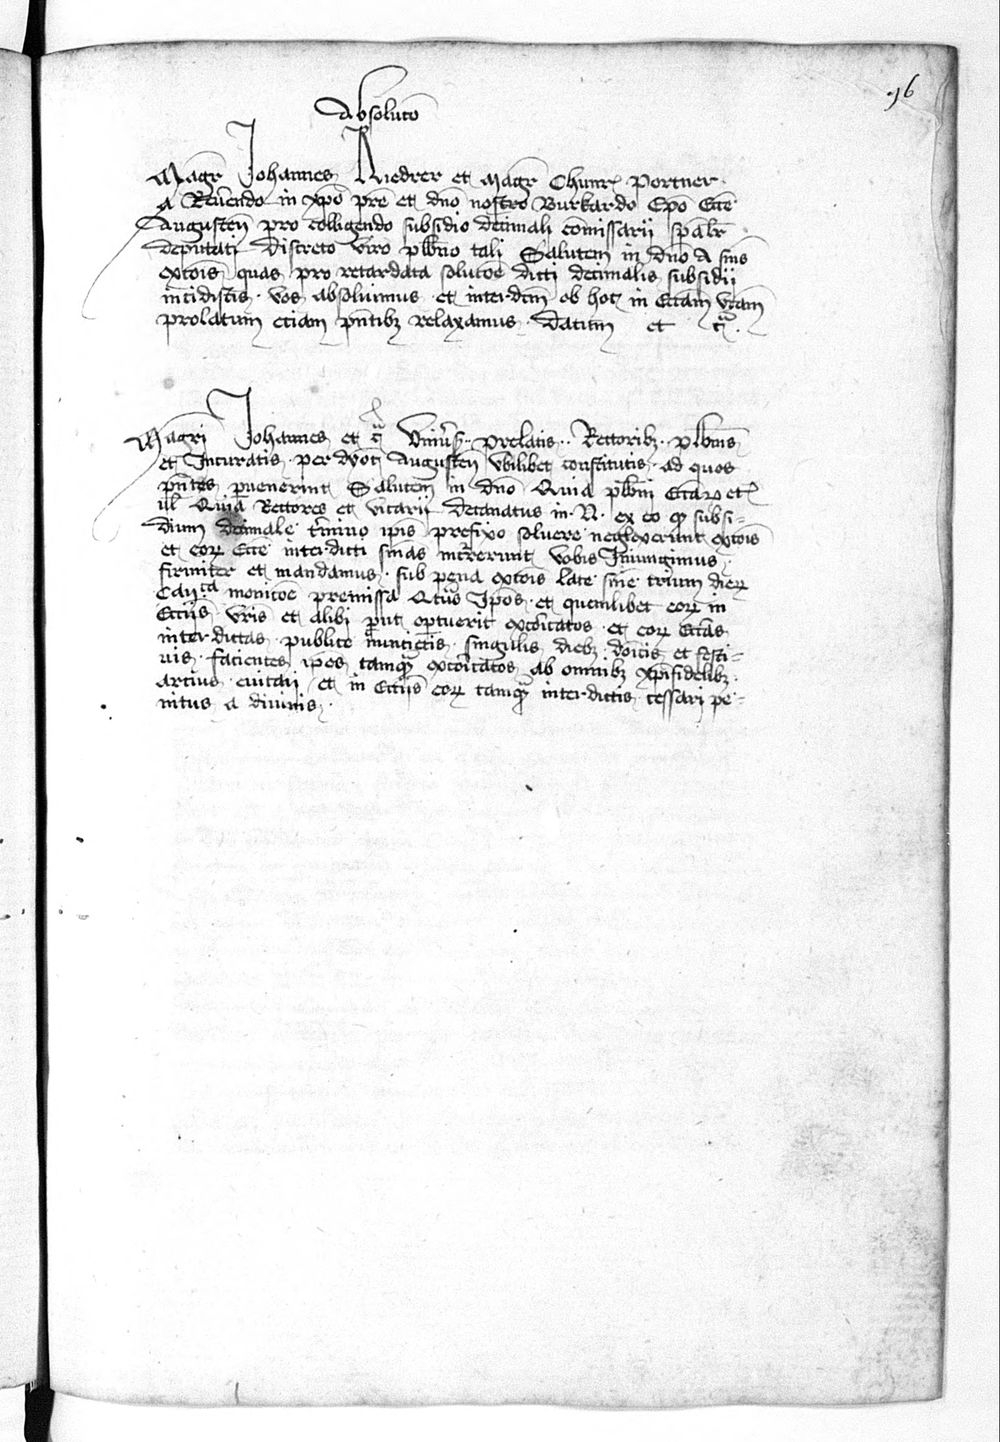 96
Absoluco̅
Magr̅ Johannes Riedrer et Magr̅ Chunr̅ Portner
A Reuerendo in xpo̅ pr̅e et dn̅o nostro Burkardo Ep̅o Ecc̅e
Augusten̅ pro colligendo subsidio decimali co̅missarii sp̅alr̅
deputati Discreto viro plb̅no tali Salutem in dn̅o A sn̅is
exco̅is quas pro retardata soluco̅e dicti decimalis subsidii
incidistis vos absoluimus et interdc̅m ob hoc in Ecc̅am vr̅am
prolatum eciam pn̅tibz relaxamus Datum et c̅
Magr̅i Johannes et c̅ Vniu̅s prelatis Rectoribz plb̅nis
et Incuratis per dyoc̅ Augusten̅ vbilibet constitutis ad quos
pn̅tes peruenerint Salutem in dn̅o Quia plb̅ni Ecc̅ar̅ etc̅
ul̅ Quia Rectores et vicarii decanatus in N ex eo q̅ subsi-
dium decimale t̅mino ip̅is prefixo soluere neglexerunt exco̅is
et eor̅ Ecc̅e interdicti sn̅ias incurrerunt vobis Iniungimus
firmiter et mandamus sub pena exco̅is late sn̅ie trium dier̅
Cano̅ica monico̅e premissa Q̅tus Ip̅os et quemlibet eor̅ in
Ecc̅iis vr̅is et alibi p̅ut optuerit exco̅icatos et eor̅ Ecc̅as
interdictas publice nuncietis singulis diebz do̅icis et festi-
uis facientes ip̅os tamq̅ exco̅icatos ab omnibz xp̅ifidelibz
arcius euitari et in Ecc̅iis eor̅ tamq̅ interdictis cessari pe-
nitus a diuinis